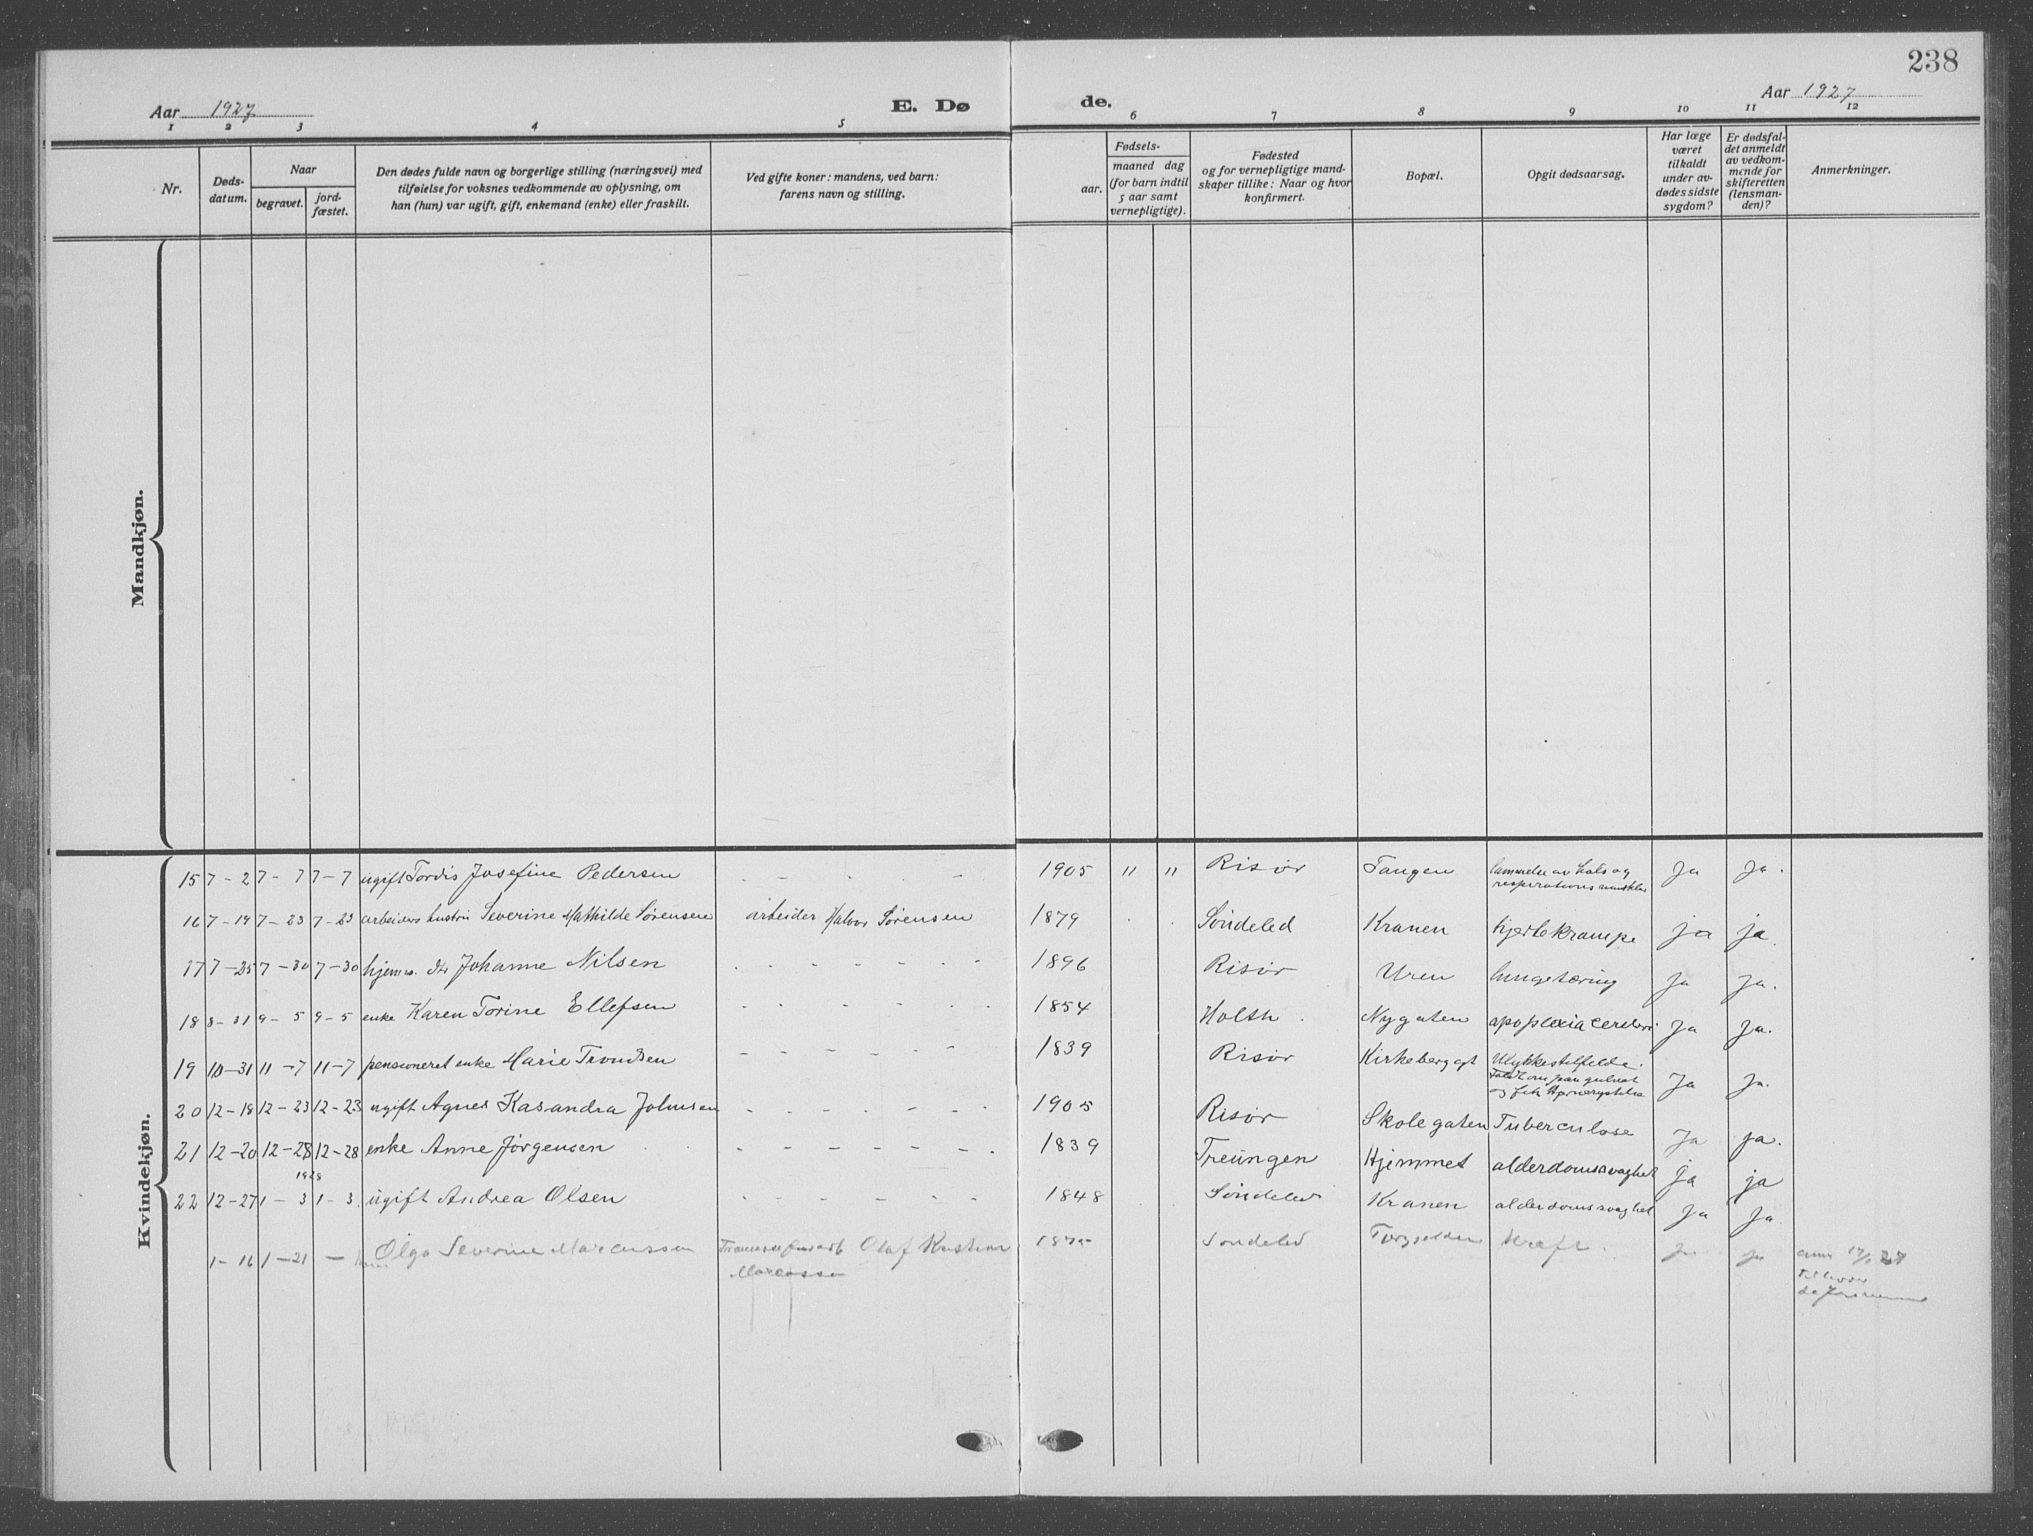 238
Aar 1927
E. Dø
de.
Aar 1927
1 2 3 4 5 6 7 8 9 10 11 12
Nr.
Døds-
datum.
Naar
begravet.
jord-
fæstet.
Den dødes fulde navn og borgerlige stilling (næringsvei) med
tilføielse for voksnes vedkommende av oplysning, om
han (hun) var ugift, gift, enkemand (enke) eller fraskilt.
Ved gifte koner: mandens, ved barn:
farens navn og stilling.
Fødsels-
aar.
maaned dag
(for barn indtil
5 aar samt
vernepligtige).
Fødested
og for vernepligtige mand-
skaper tillike: Naar og hvor
konfirmert.
Bopæl.
Opgit dødsaarsag.
Har læge
været
tilkaldt
under av-
dødes sidste
sygdom?
Er dødsfal-
det anmeldt
av vedkom-
mende for
skifteretten
(lensman-
den)?
Anmerkninger.
Mandkjøn.
Kvindekjøn.
15 7-2 7-7 7-7 ugift Tordis Josefine Pedersen - - - - - 1905 " " Risør Tangen lammelse av hals og Ja Ja.
respirations muskler
16 7-19 7-23 7-23 arbeiders hustru Severine Mathilde Sørensen arbeider Halvor Sørensen 1879 Søndeled Kranen hjertekrampe ja ja.
17 7-25 7-30 7-30 Johanne Nilsen - - - - - - 1896 Risør Uren lungetæring Ja Ja.
18 8-31 9-5 9-5 enke Karen Torine Ellefsen - - - - - - 1854 Holth. Nygaten apoplexia cerebri Ja Ja.
19 10-31 11-7 11-7 pensioneret enke Marie Trondsen - - - - - - 1839 Risør Kirkeberggt Ulykkestilfelde. Ja Ja.
og fik
20 12-18 12-23 12-23 ugift Agnes Kasandra Johnsen - - - - - - 1905 Risør Skolegaten Tuberculose Ja ja.
21 12-20 12-28 12-28 enke Anne Jørgensen - - - - - - 1839 Treungen Hjemmet alderdomssvaghet Ja ja
1928
22 12-27 1-3 1-3 ugift Andrea Olsen - - - - - - 1848 Søndeled Kranen alderdomssvaghet Ja Ja
1-16 1-21 - Olga Severine Marcussen Olaf Kristian Søndeled Kræft. Ja Ja
Marcussen